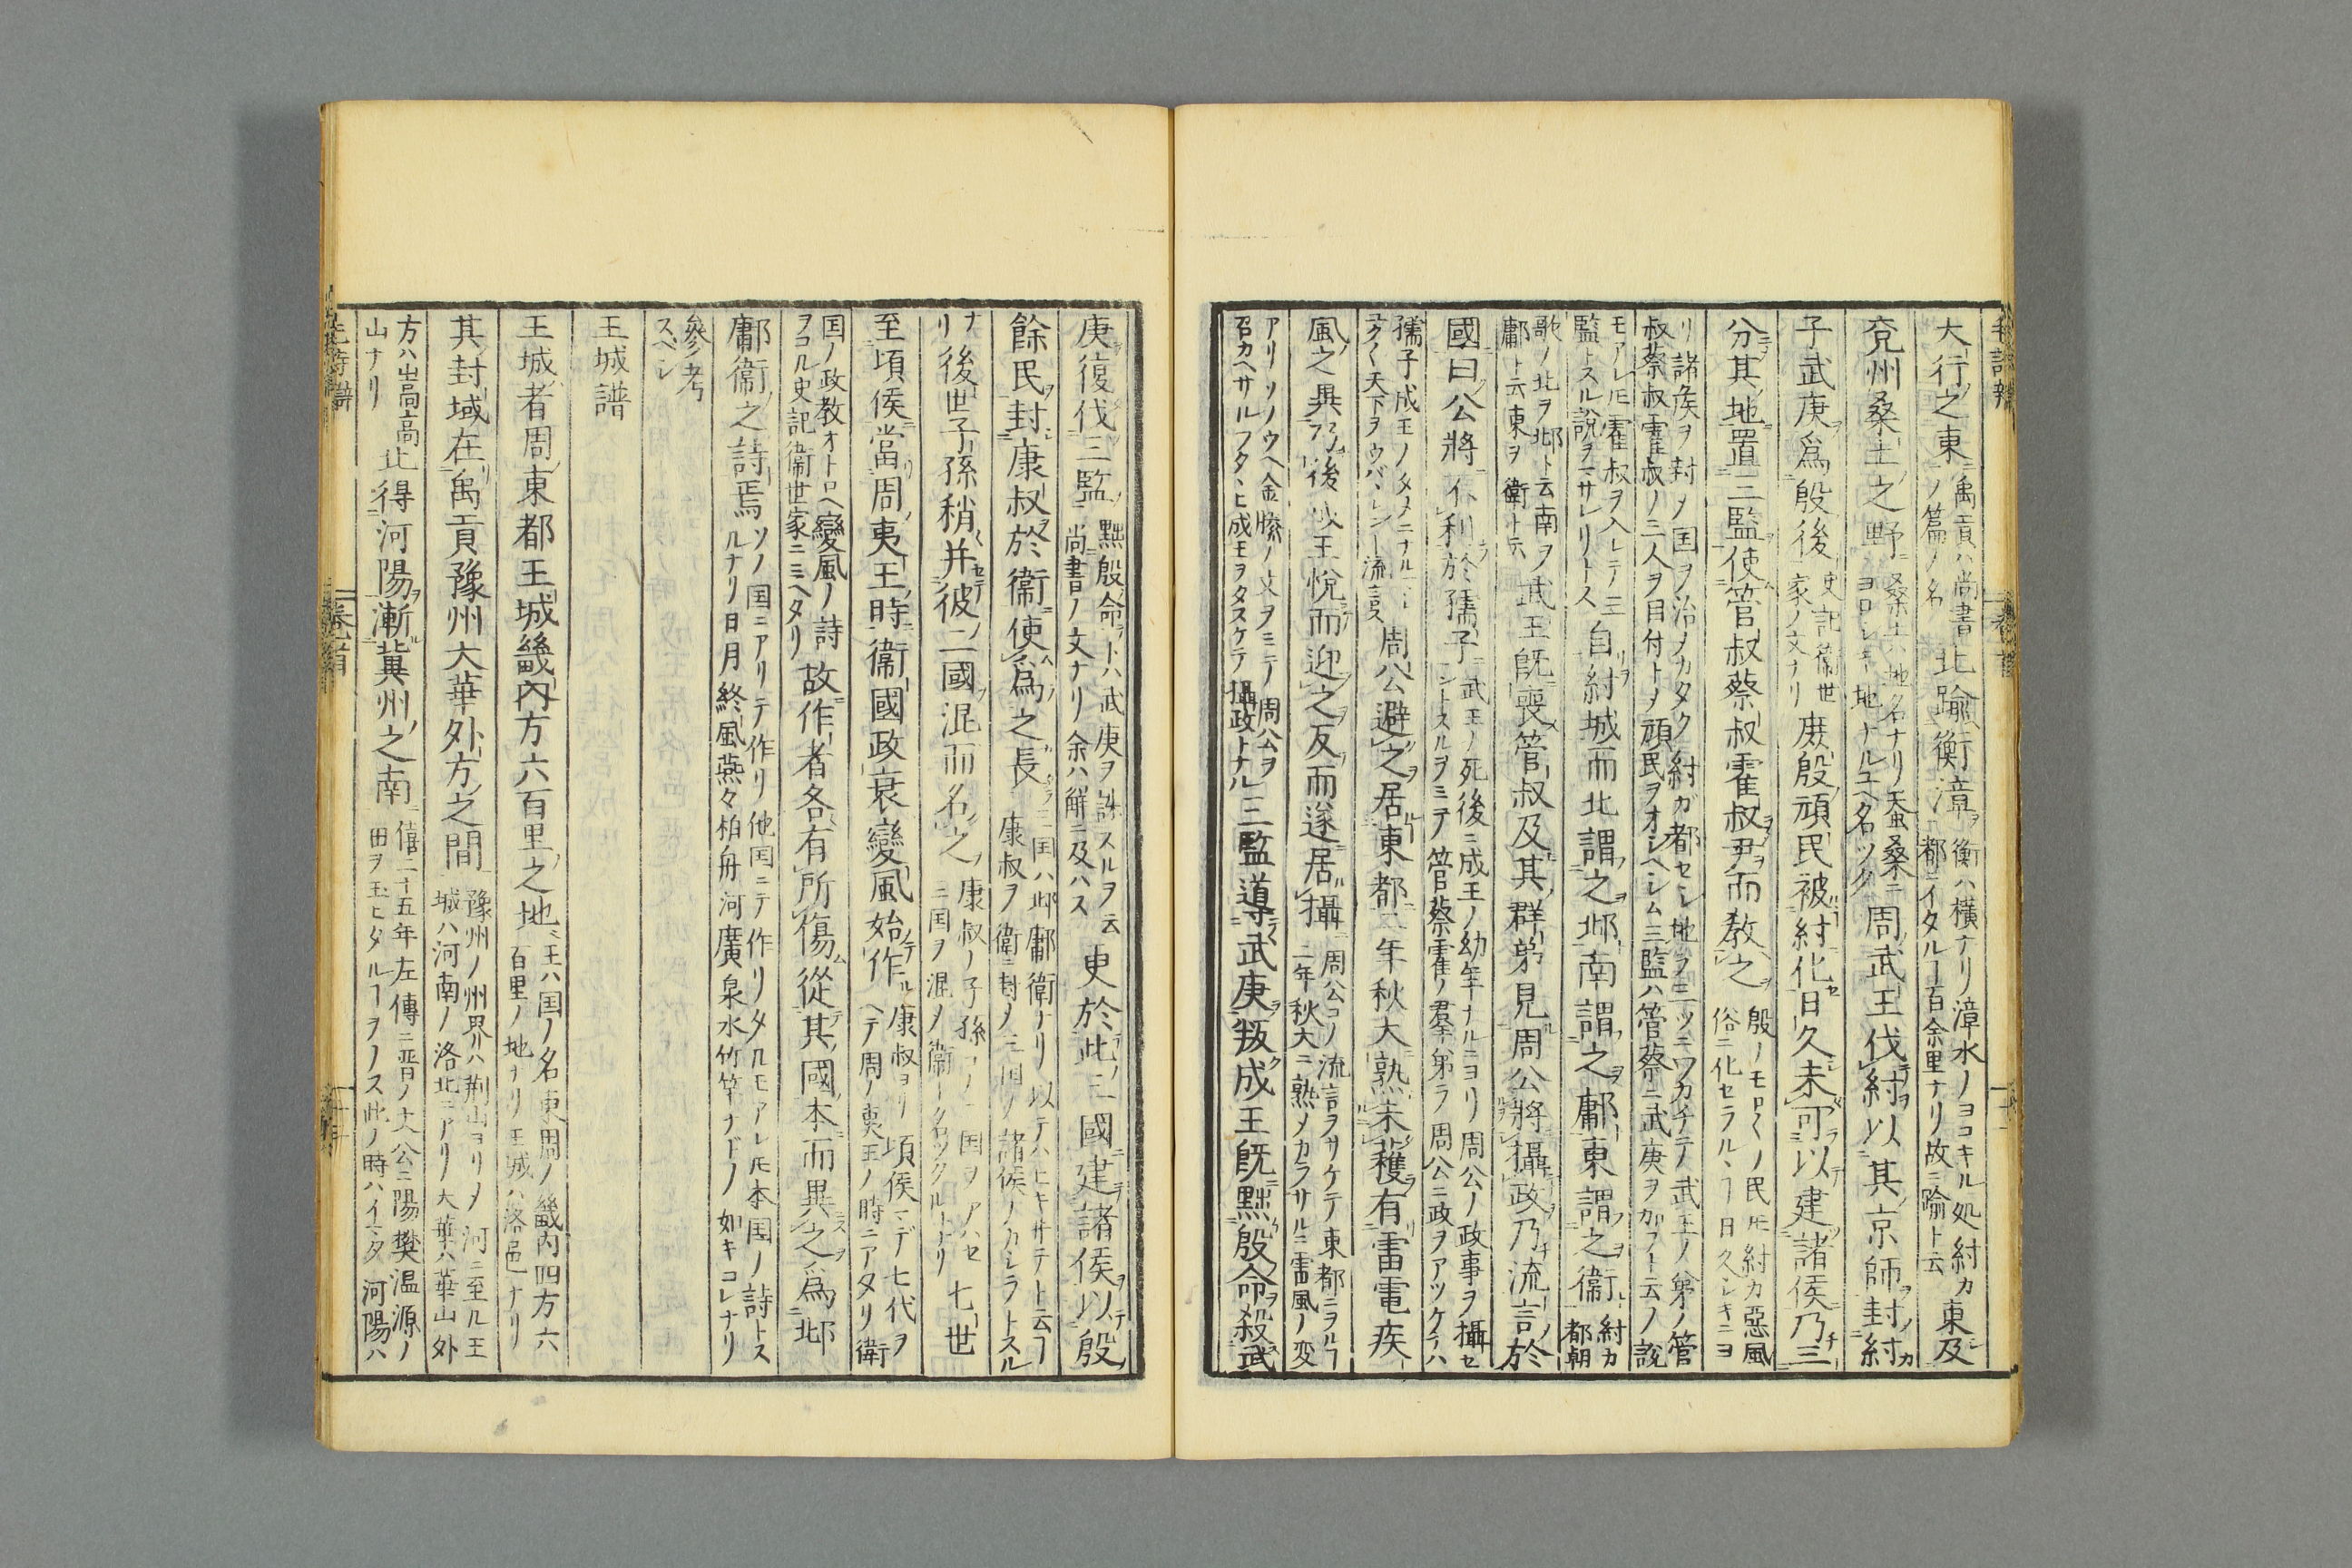 大行之東禹貢ハ尚書ノ篇ノ名北踰衡漳衡ハ横ナリ漳水ノヨコキル処紂カ都ニイタルヿ百余里ナリ故ニ踰ト云東及
兗州桑土之野桑土ハ地ノ名ナリ蚕桑ニヨロシキ地ナルユヘ名ツク周武王伐紂以其京師封紂
子武庚爲殷後史記衛世家ノ文ナリ庶殷頑民被紂化日久未可以建諸侯乃三
分其地置三監使管叔蔡叔霍叔尹而教之殷ノモロ〱ノ民𪜈紂カ惡風俗ニ化セラルヽヿ日久シキニヨ
リ諸侯ヲ封メ国ヲ治メカタク紂ガ都セシ地ヲ三ツニワカチテ武王ノ弟ノ管
叔蔡叔霍叔ノ三人ヲ目付トメ頑民ヲオシヘシム三監ハ管蔡ニ武庚ヲ加フト云ノ説
モアレ𪜈霍叔ヲ入レテ三監トスル説ヲマサレリトス自紂城而北謂之邶南謂之鄘東謂之衞紂カ都朝
歌ノ北ヲ邶ト云南ヲ鄘ト云東ヲ衛ト云武王既喪管叔及其群弟見周公將攝政乃流言於
國曰公將不利於孺子武王ノ死後ニ成王ノ幼年ナルニヨリ周公ノ政事ヲ攝セントスルヲミテ管蔡霍ノ羣弟ラ周公ニ政ヲアツケテハ
孺子成王ノタメニナルマシ天下ヲウバヽレント流言ス周公避之居東都二年秋大熟未穫有雷電疾
風之異乃後成王悅而迎之反而遂居攝周公コノ流言ヲサケテ東都ニヲルヿ二年秋大ニ熟メカラサルニ雷風ノ変
アリソノウヘ金縢ノ文ヲミテ周公ヲ召カヘサルフタヽヒ成王ヲタスケテ攝政トナル三監導武庚叛成王既黜殷命殺武
庚復伐三監黜殷命トハ武庚ヲ誅スルヲ云尚書ノ文ナリ余ハ觧ニ及ハス更於此三國建諸侯以殷
餘民封康叔於衞使爲之長三国ハ邶鄘衛ナリ以テハヒキサテト云フ康叔ヲ衛ニ封メ三国ノ諸侯ノカシラトスル
ナリ後世子孫稍并彼二國混而名之康叔ノ子孫コノ二国ヲアハセ三国ヲ混メ衞ト名ツクルナリ七世
至頃侯當周夷王時衞國政衰變風始作康叔ヨリ頃侯マデ七代ヲヘテ周ノ夷王ノ時ニアタリ衛
国ノ政教オトロヘ變風ノ詩ヲコル史記衞世家ニミヘタリ故作者各有所傷從其國本而異之爲邶
鄘衞之詩焉ソノ国ニアリテ作リ他国ニテ作リタルモアレ𪜈本国ノ詩トスルナリ日月終風燕々柏舟河廣泉水竹竿ナドノ如キコレナリ
參考スベシ
王城譜
王城者周東都王城畿內方六百里之地王ハ国ノ名東周ノ畿内四方六百里ノ地ナリ王城ハ洛邑ナリ
其封域在禹貢豫州大華外方之間豫州ノ州界ハ荆山ヨリメ河ニ至ル王城ハ河南ノ洛北ニアリ大華ハ華山外
方ハ嵩高山ナリ北得河陽漸冀州之南僖二十五年左傳ニ晋ノ文公ニ陽樊温源ノ田ヲ玉ヒタルヿヲノス此ノ時ハイマタ河陽ハ